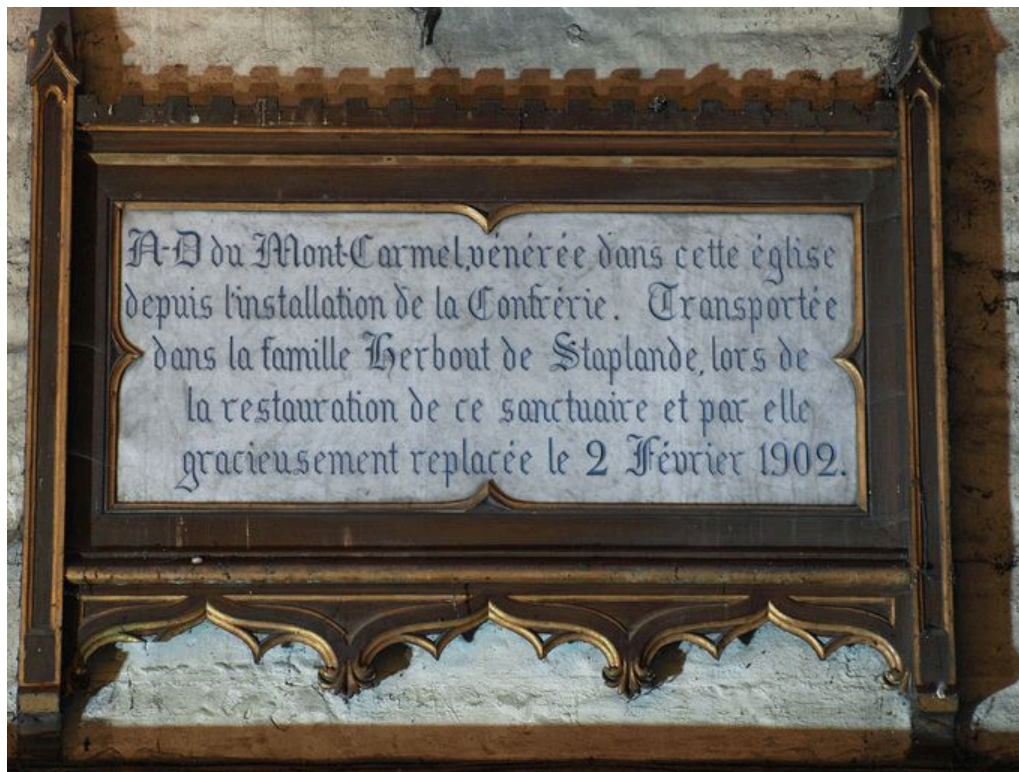 N-D du Mont-Carmel, vénérée dans cette église
depuis l'installation de la Confrérie. Transportée
dans la famille Herbout de Staplande, lors de
la restauration de ce sanctuaire et par elle
gracieusement replacée le 2 Février 1902.